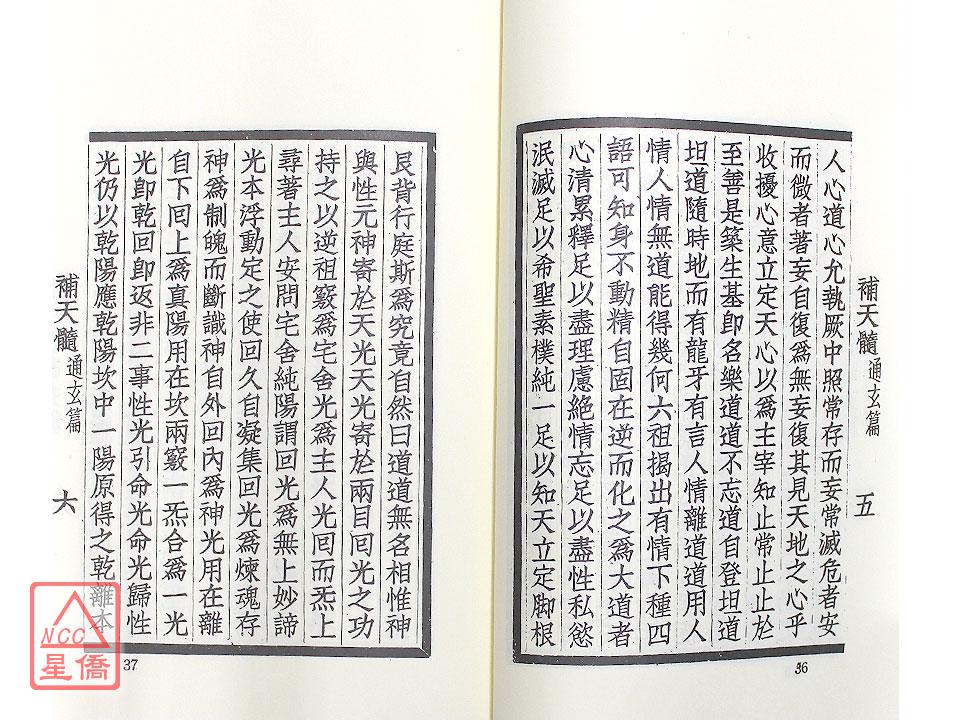 補天髓 通玄篇
五
人心道心允執厥中照常存而妄常滅危者安
而微者著妄自復爲無妄復其見天地之心乎
收擾心意立定天心以爲主宰知止常止止於
至善是築生基卽名樂道道不忘道自登坦道
坦道隨時地而有龍牙有言人情離道道用人
情人情無道能得幾何六祖揭出有情下種四
語可知身不動精自固在逆而化之爲大道者
心清累釋足以盡理慮絕情忘足以盡性私慾
泯滅足以希聖素樸純一足以知天立定脚根
36
艮背行庭斯爲究竟自然曰道無名相惟神
與性元神寄於天光天光寄於兩目回光之功
持之以逆祖竅爲宅舍光爲主人光回而炁上
尋著主人安問宅舍純陽謂回光爲無上妙諦
光本浮動定之使回久自凝集回光爲煉魂存
神爲制魄而斷識神自外回內爲神光用在離
自下回上爲真陽用在坎兩竅一炁合爲一光
光卽乾回卽返非二事性光引命光命光歸性
光仍以乾陽應乾陽坎中一陽原得之乾離本
補天髓 通玄篇
六
37
NCC
星僑